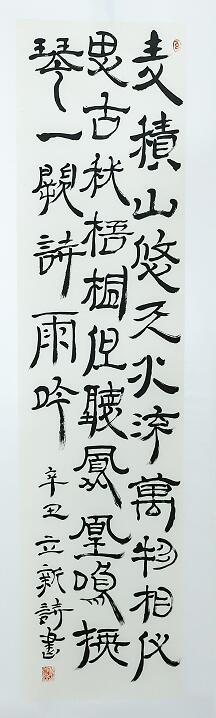 麦積山悠天水流萬物相依
思古秋梧桐但聽鳳凰鳴撫
琴一闋詩雨吟
辛丑立新詩書